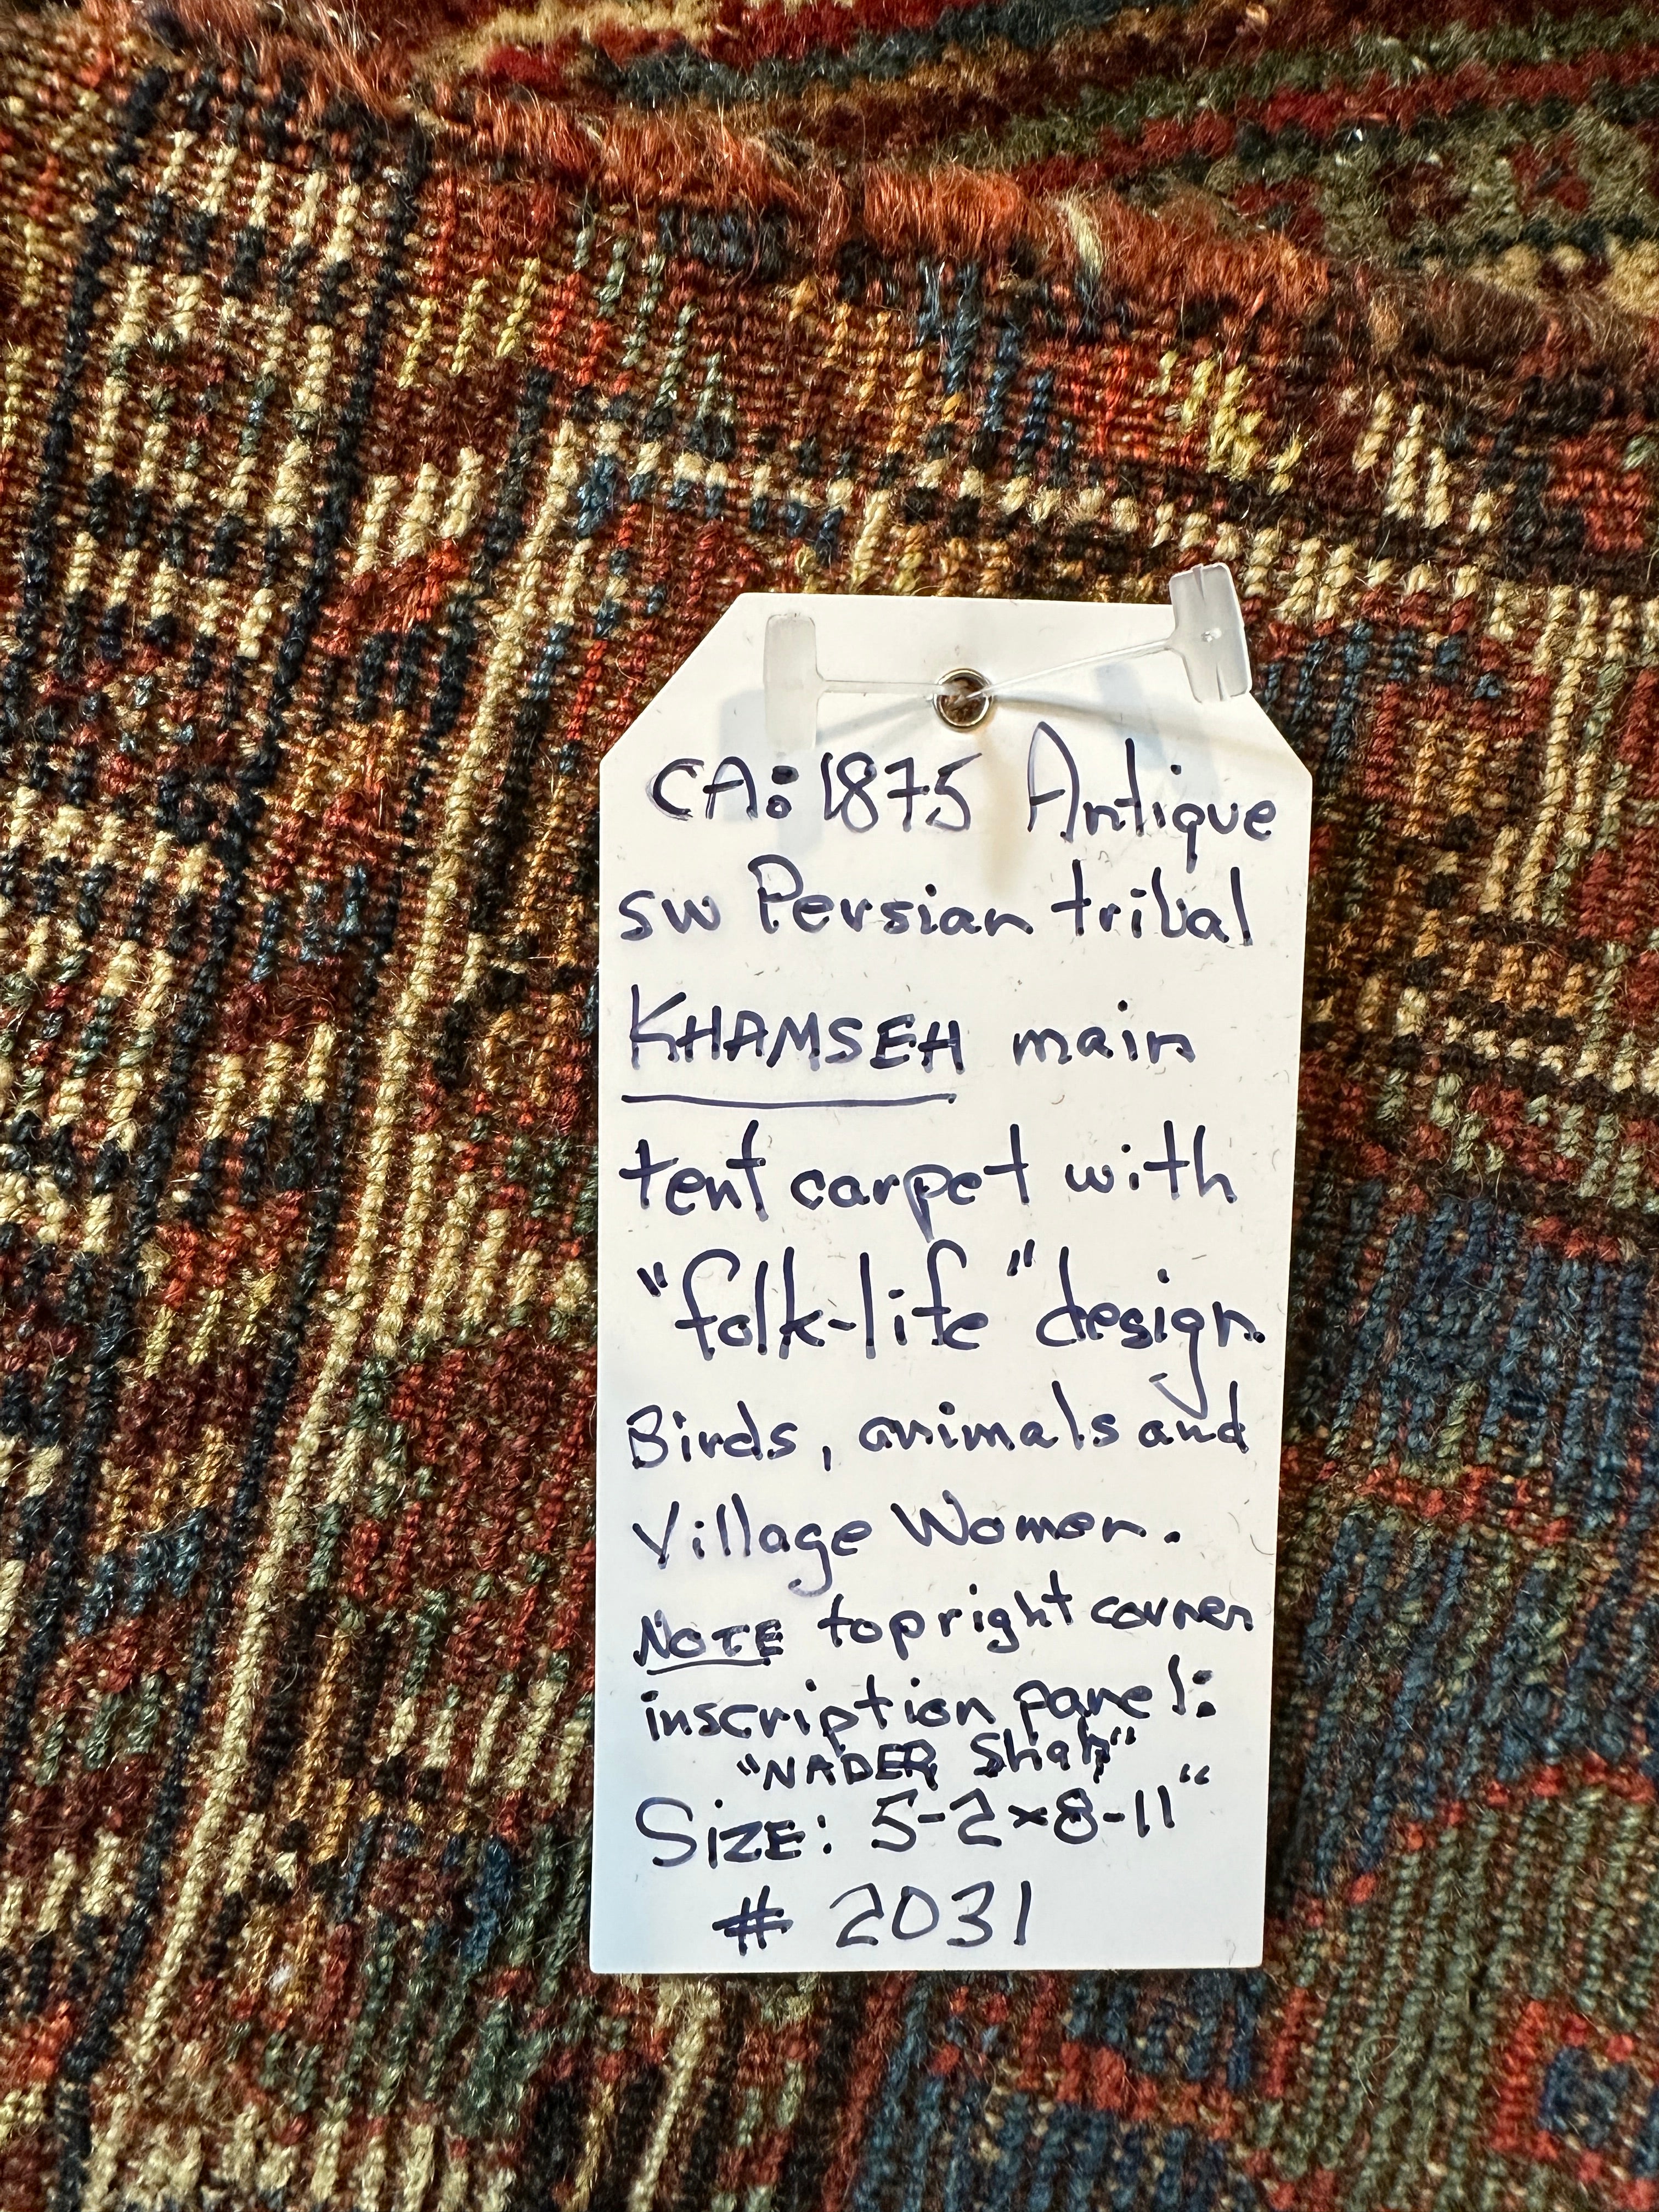 CA: 1875 Antique
SW Persian tribal
KHAMSEH main
tent carpet with
"folk-life" design
Birds, animals and
Village Women.
NOTE top right corner
inscription panel:
"NADER Shah"
SIZE: 5-2x8-11"
# 2031